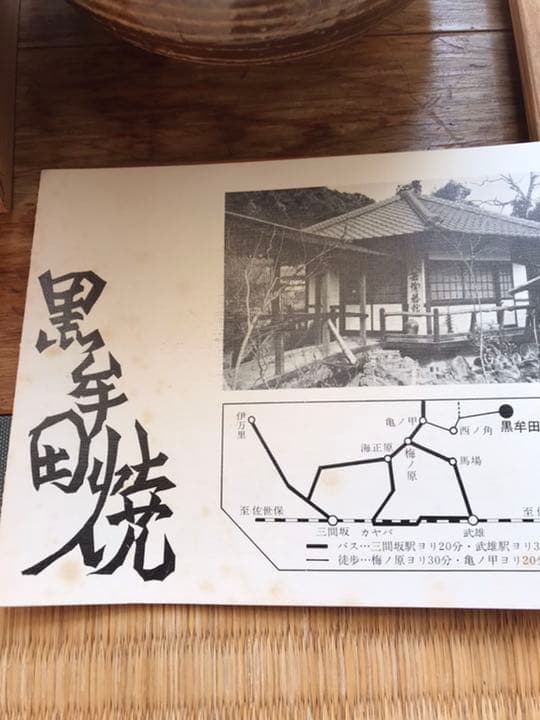 黒牟田焼
伊万里
亀ノ甲
西ノ角
黒牟田
海正原
梅ノ原
馬場
至佐世保
三間坂
カヤバ
武雄
至
バス…三間坂駅ヨリ20分・武雄駅ヨリ3
徒歩…梅ノ原ヨリ30分・亀ノ甲ヨリ20